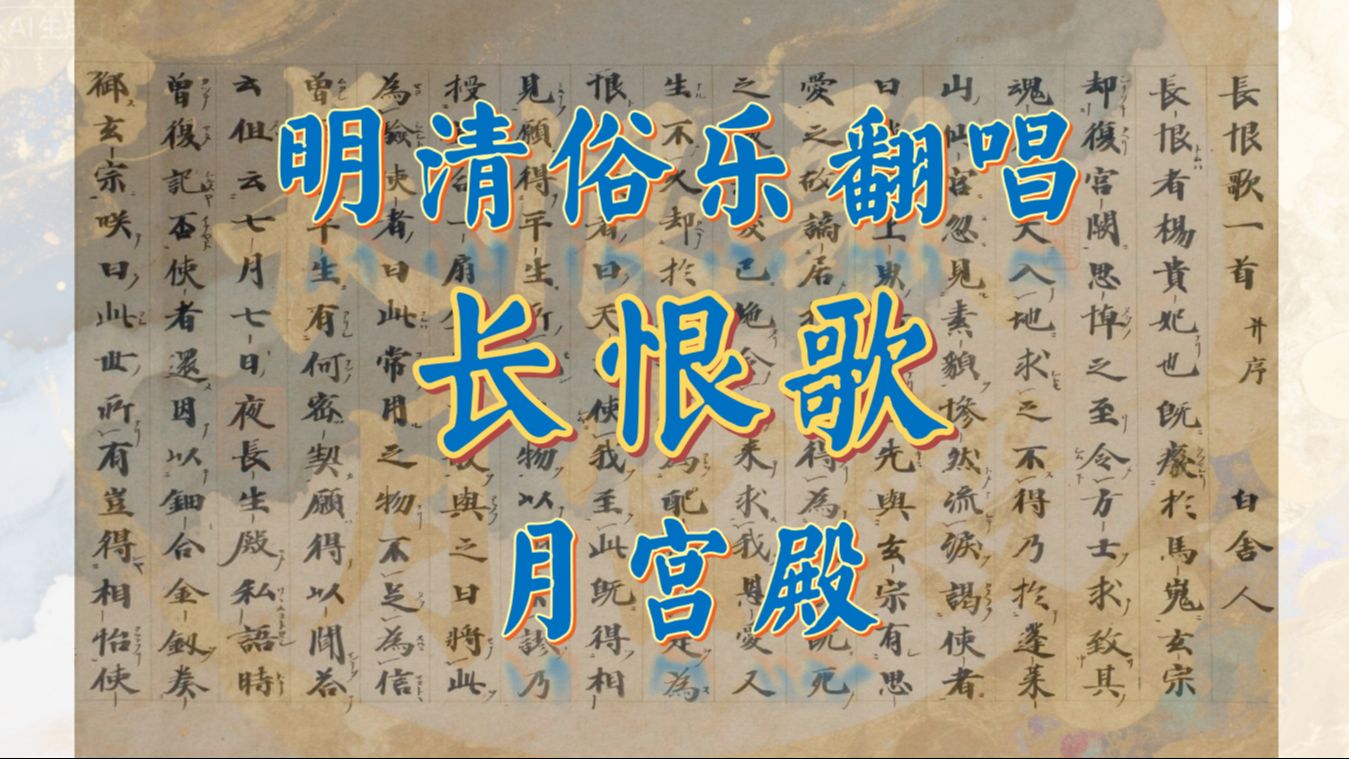 明清俗乐翻唱
长恨歌
月宫殿
長恨歌一首 并序 白舍人
長恨者楊貴妃也既癈於馬嵬玄宗
却復宮闕思悼之至令方士求致其
魂天入地求之不得乃於蓬萊
山仙宮忽見素貌慘然流淚謁使者
曰上先與玄宗有思
愛之故謫居得為死
之已今來求我恩愛又
生不久却於為配為
恨者曰天使我至此既得相
見願得平生所物以乃
授一扇與之曰將此
為驗使者曰此常用之物不足為信
曾平生有何密契願得以聞答
云但云七月七日夜長生殿私語時
曾復記否使者還因以鈿合金釵奏
御玄宗咲曰此世所有豈得相怡使